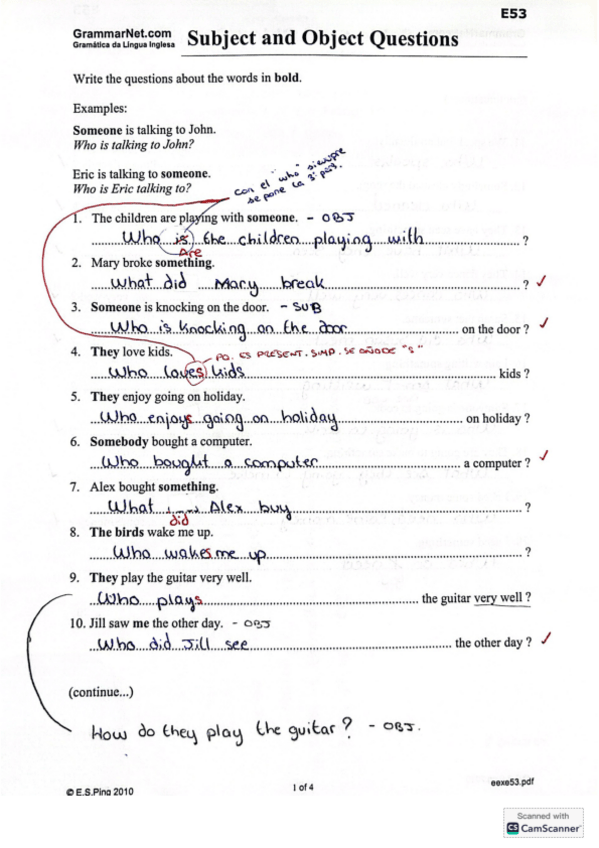 E53
GrammarNet.com
Gramática da Língua Inglesa
Subject and Object Questions
Write the questions about the words in bold.
Examples:
Someone is talking to John.
Who is talking to John?
Eric is talking to someone.
Who is Eric talking to?
con el "who" siempre
se pone la 3ª pers.
1. The children are playing with someone. - OBJ
Who is the children playing with ?
Are
2. Mary broke something.
What did Mary break ?
3. Someone is knocking on the door. - SUB
Who is knocking on the door on the door ?
4. They love kids. PQ. ES PRESENT. SIMP. SE AÑADE "S"
Who loves kids kids ?
5. They enjoy going on holiday.
Who enjoys going on holiday on holiday ?
6. Somebody bought a computer.
Who bought a computer a computer ?
7. Alex bought something.
What Alex buy ?
did
8. The birds wake me up.
Who wakes me up ?
9. They play the guitar very well.
Who plays the guitar very well ?
10. Jill saw me the other day. - OBJ
Who did Jill see the other day ?
(continue...)
How do they play the guitar? - OBJ.
© E.S.Ping 2010
1 of 4
eexe53.pdf
Scanned with
CS CamScanner